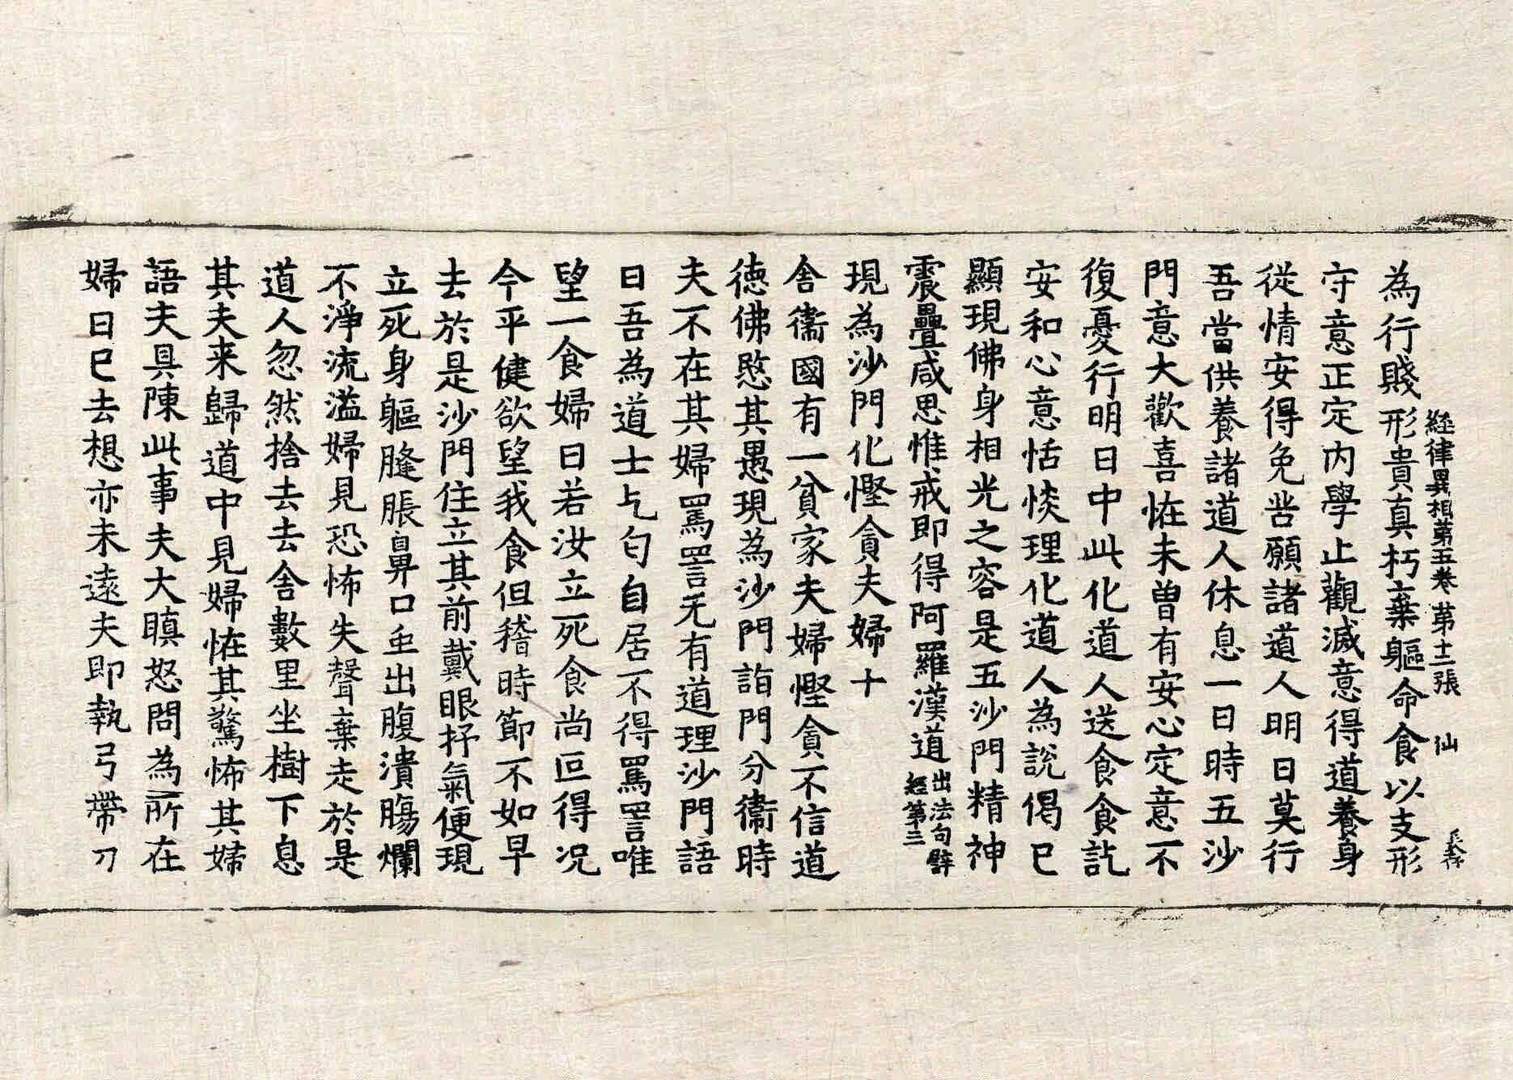 經律異相第五卷 第十二張 仙
為行賤形貴真朽棄軀命食以支形
守意正定内學止觀滅意得道養身
從情安得免苦願諸道人明日莫行
吾當供養諸道人休息一日時五沙
門意大歡喜恠未曽有安心定意不
復憂行明日日中此化道人送食食訖
安和心意恬惔理化道人為說偈巳
顯現佛身相光之容是五沙門精神
震疊咸思惟戒即得阿羅漢道出法句譬
經第三
現為沙門化慳貪夫婦十
舍衛國有一貧家夫婦慳貪不信道
德佛愍其愚現為沙門詣門分衛時
夫不在其婦罵詈无有道理沙門語
曰吾為道士乞匂自居不得罵詈唯
望一食婦曰若汝立死食尚叵得况
今平健欲望我食但稽時節不如早
去於是沙門住立其前戴眼抒氣便現
立死身軀膖脹鼻口虫出腹潰膓爛
不淨流溢婦見恐怖失聲棄走於是
道人忽然捨去去舍數里坐樹下息
其夫来歸道中見婦恠其驚怖其婦
語夫具陳此事夫大瞋怒問為所在
婦曰巳去想亦未遠夫即執弓帶刀